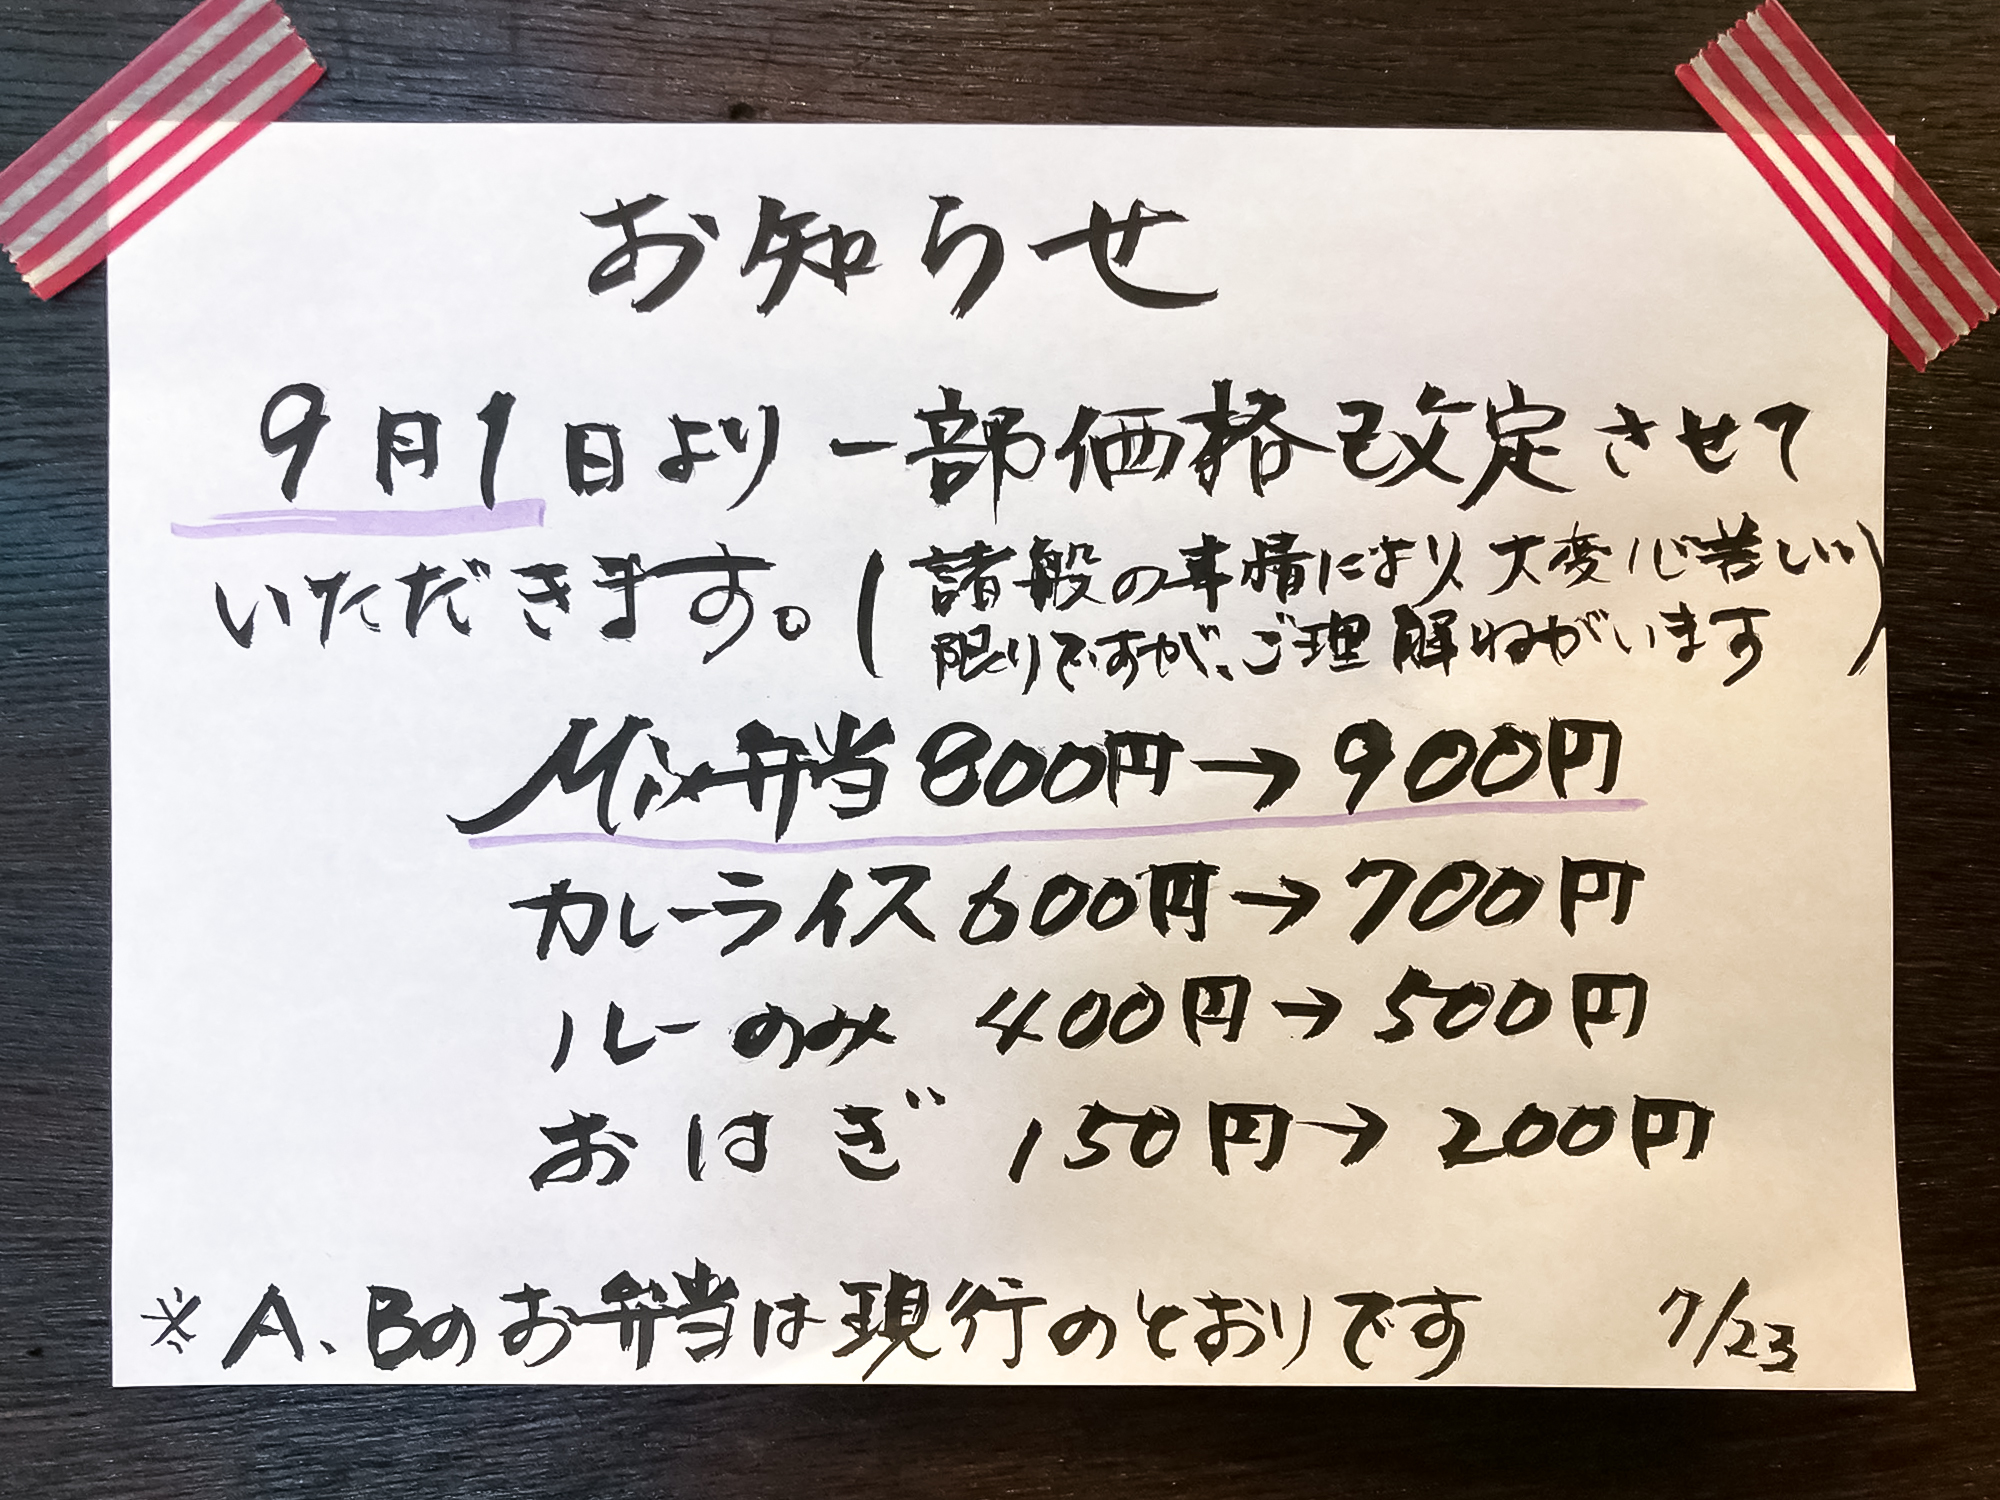 お知らせ
9月1日より一部価格改定させて
いただきます。(諸般の事情により、大変心苦しい
限りですが、ご理解ねがいます)
Mix弁当 800円→900円
カレーライス 600円→700円
ルーのみ 400円→500円
おはぎ 150円→200円
※A、Bのお弁当は現行のとおりです 7/23